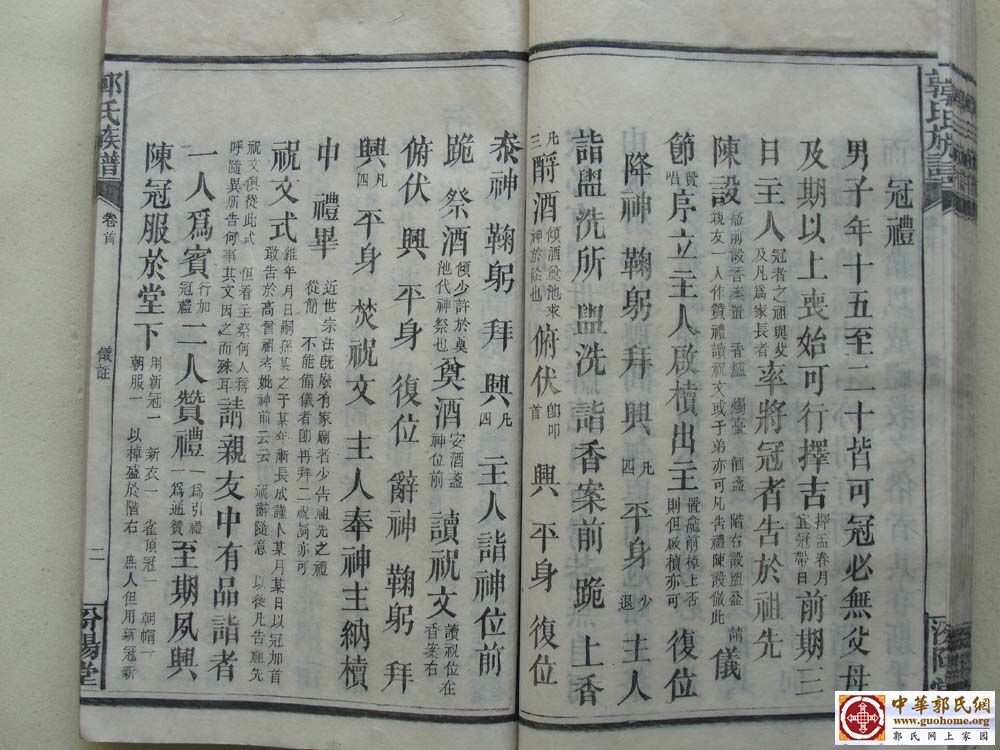 冠禮
男子年十五至二十皆可冠必無父母
及期以上喪始可行擇吉擇孟春月宜冠帶日前期三
日主人冠者之祖與父及凡爲家長者率將冠者告於祖先
陳設龕前設香案置香爐燭臺酒盞階右設盥盆請親友一人作贊禮讀祝文或子弟亦可凡告禮陳設倣此儀
節贊唱序立主人啟櫝出主置龕前棹上否則但啟櫝亦可復位
降神鞠躬拜興凡四平身少退主人
詣盥洗所盥洗詣香案前跪上香
凡三酹酒傾酒奠池求神於陰也俯伏卽叩首興平身復位
叅神鞠躬拜興凡四主人詣神位前
跪祭酒傾少許於奠池代神祭也奠酒安酒盞神位前讀祝文讀祝位在香案右
俯伏興平身復位辭神鞠躬拜
興凡四平身焚祝文主人奉神主納櫝
中禮畢近世宗法旣廢有家廟者少告祖先之禮從簡不能備儀者卽再拜二祝詞亦可
祝文式維年月日嗣孫某之子某年漸長成謹卜某月某日以冠加首敢告於高曾祖考妣神前云云祝辭隨意以後凡告祖先
祝文俱從此式但看主祭何人稱呼隨異所告何事其文因之而殊耳請親友中有品詣者
一人爲賓行加冠禮二人贊禮一爲引禮一爲通贊至期夙興
陳冠服於堂下用新冠一新衣一雀頂冠一朝帽一朝服一以棹盛於階右庶人但用新冠新
郭氏族譜
卷首
儀註
二
汾陽堂
郭氏族譜
汾陽堂
中華郭氏網
www.guohome.org
郭氏網上家園